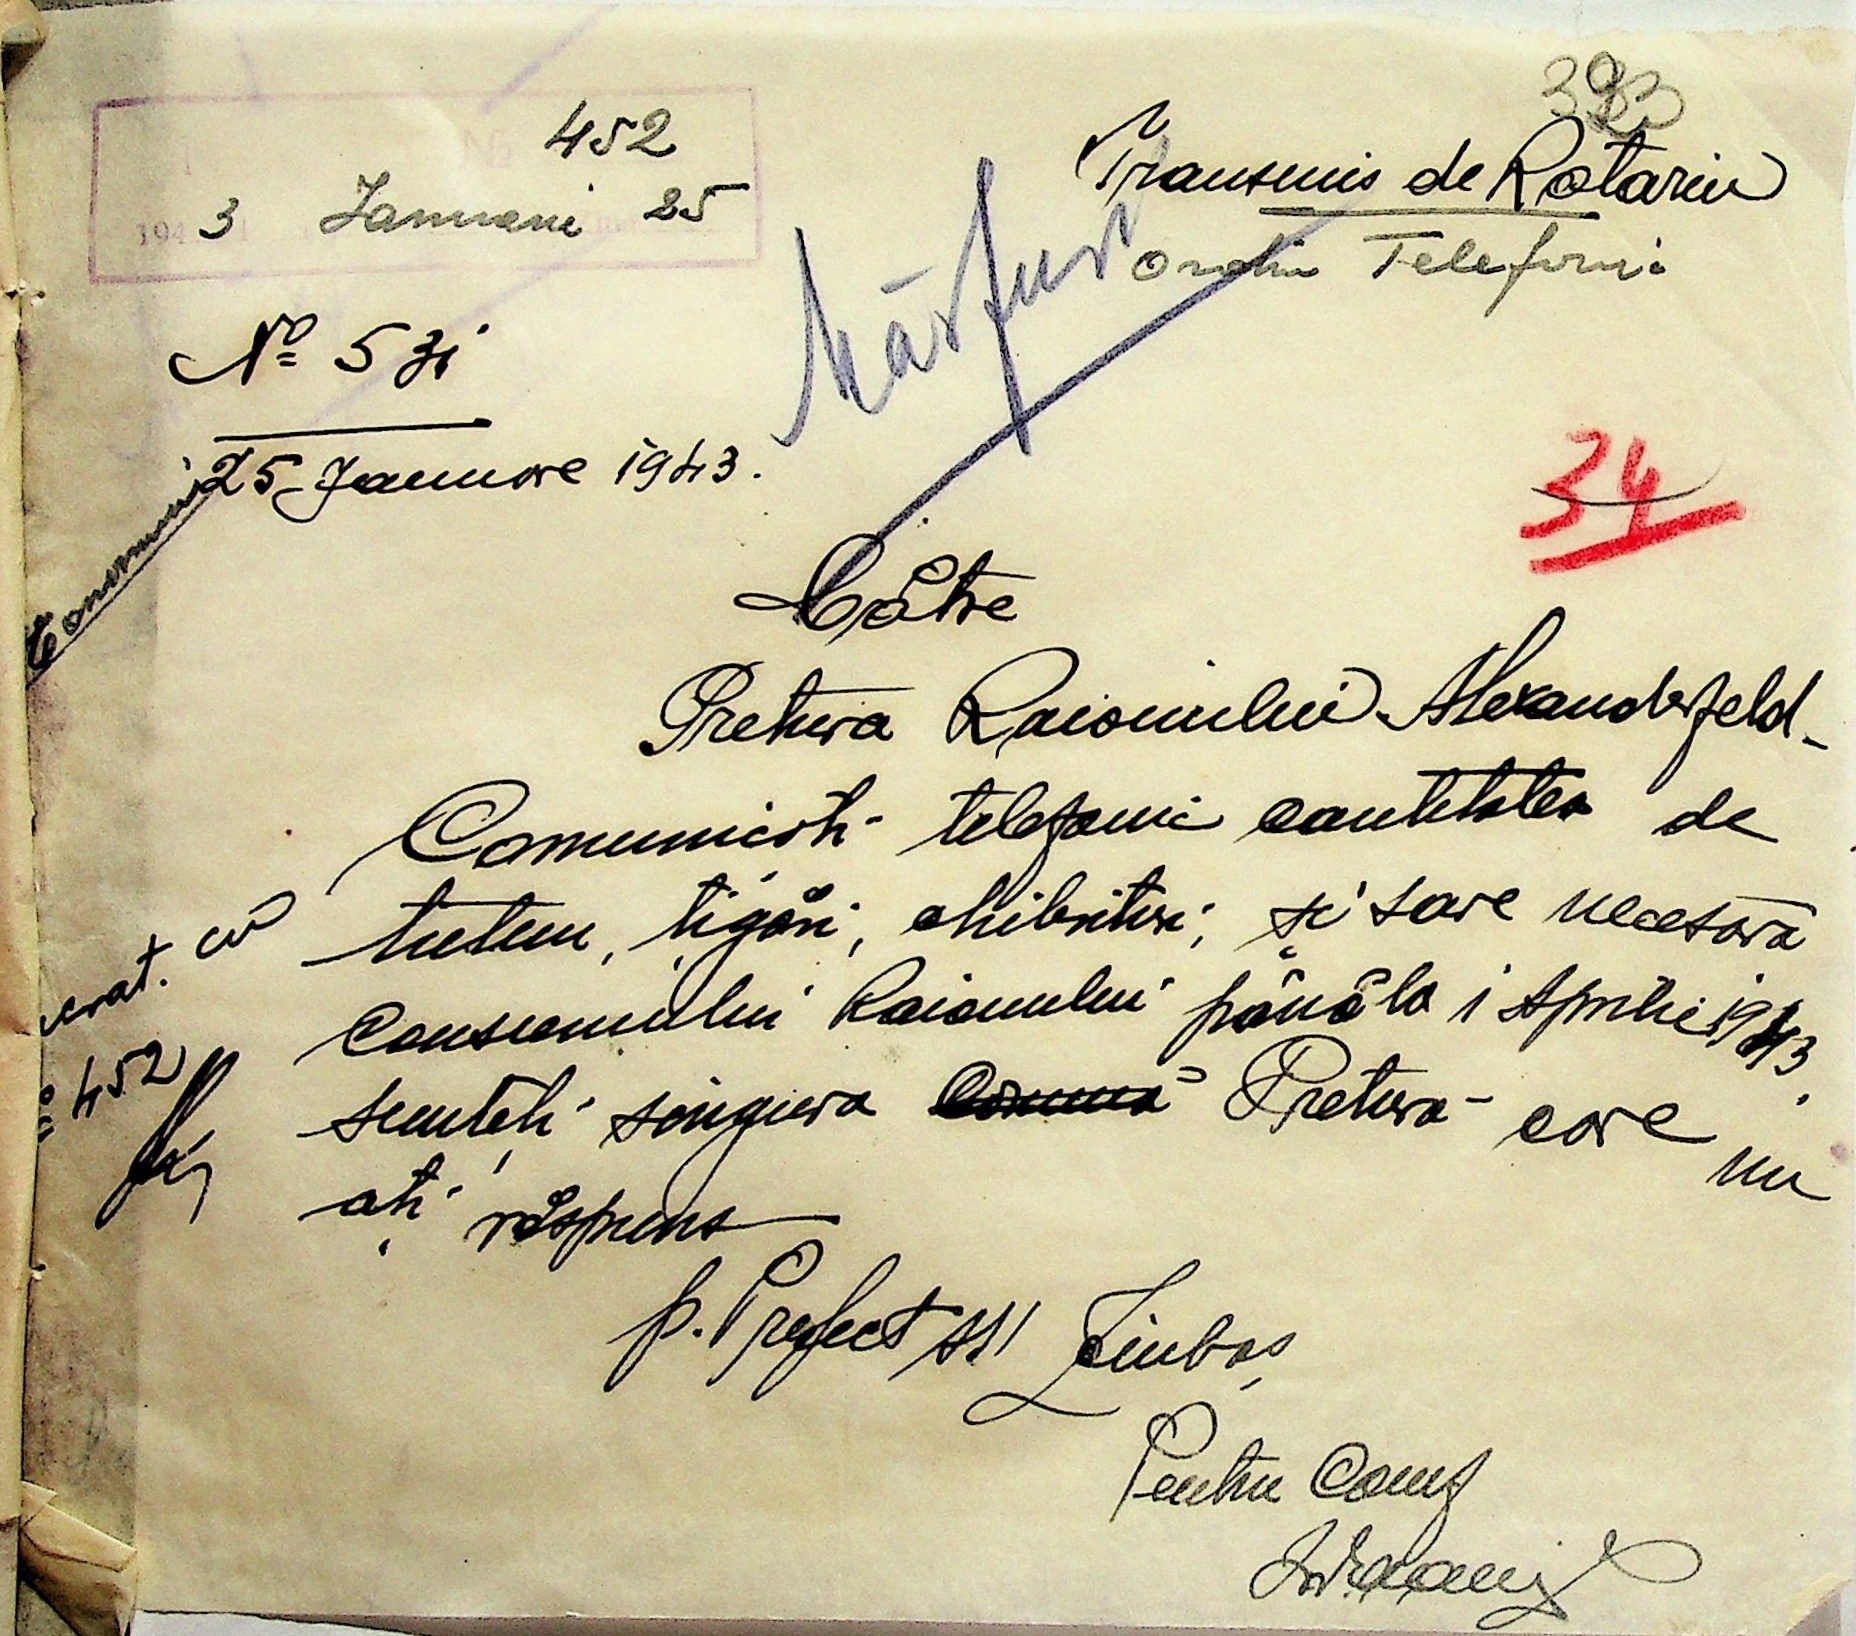 393
Nº 452
1943 Ianuarie 25
Transmis de Rotariu
Ordin Telefonic
Nº 531
25 Januare 1943.
34
Către
Pretura Raionului Alexanderfeld-
Comunicați telefonic cantitatea de
tutun, țigări, chibrituri, și sare necesară
consumului Raionului până la 1 Aprilie 1943.
sunteți singura Pretura care nu
ați răspuns
p. Prefect ss/
Pentru Conf
cu
Nº 452